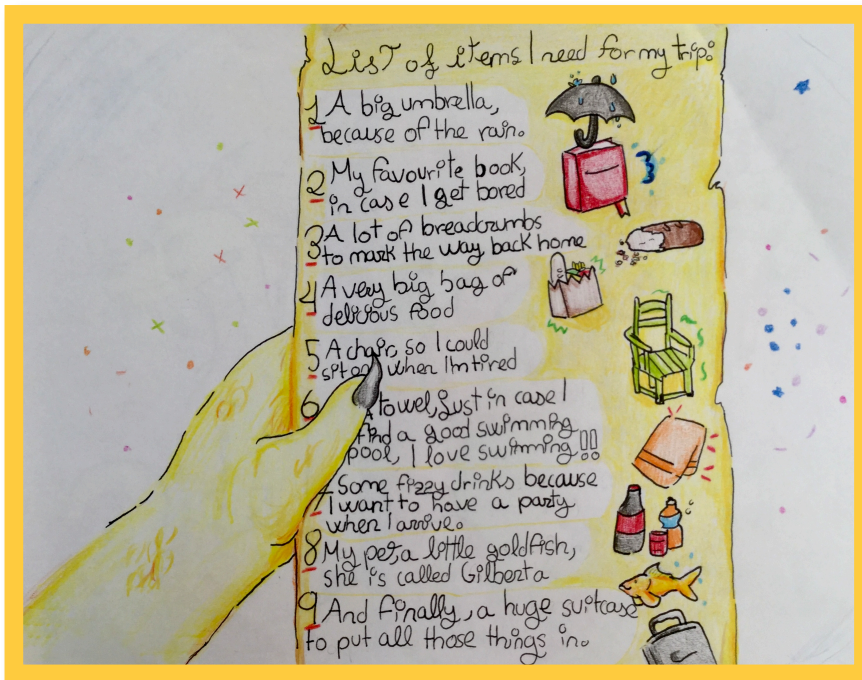 List of items I need for my trip:
1 A big umbrella,
because of the rain.
2 My favourite book,
in case I get bored
3 A lot of breadcrumbs
to mark the way back home
4 A very big bag of
delicious food
5 A chair, so I could
sit when I'm tired
6 towel, just in case I
find a good swimming
pool, I love swimming!!
7 Some fizzy drinks because
I want to have a party
when I arrive.
8 My pet, a little goldfish,
she is called Gilberta
9 And finally, a huge suitcase
to put all those things in.